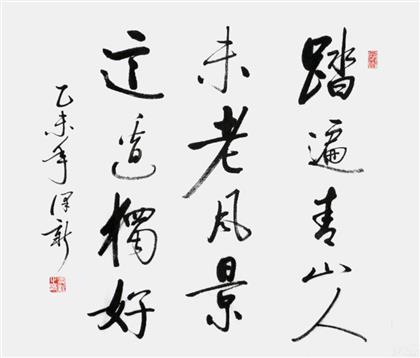 踏遍青山人
未老风景
这边獨好
乙未年泽新